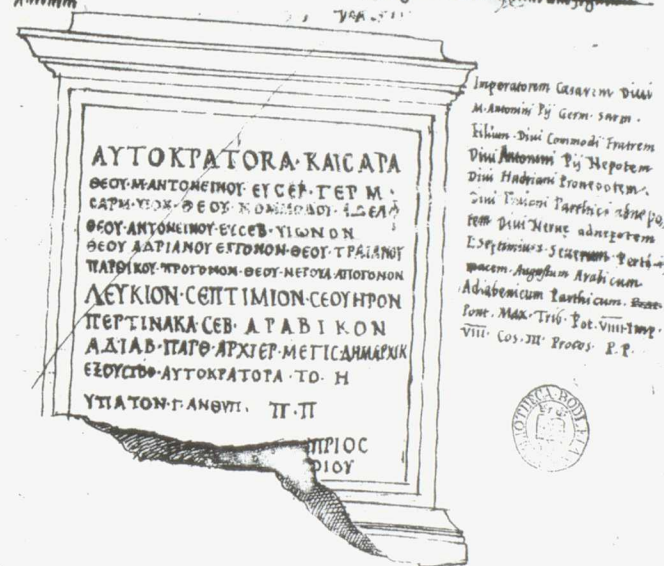 ΑΥΤΟΚΡΑΤΟRΑ·ΚΑΙCΑΡΑ
ΘΕΟΥ·Μ·ΑΝΤΟΝΕΙΝΟΥ·ΕΥCΕΒ·ΓΕΡΜ·
CΑΡΜ·ΥΙΟΝ·ΘΕΟΥ·ΚΟΜΜΟΔΟΥ·ΑΔΕΛΦ
ΘΕΟΥ·ΑΝΤΟΝΕΙΝΟΥ·ΕΥCΕΒ·ΥΙΩΝΟΝ
ΘΕΟΥ ΑΔΡΙΑΝΟΥ ΕΓΓΟΝΟΝ·ΘΕΟΥ·ΤΡΑΙΑΝΟΥ
ΠΑΡΘΙΚΟΥ·ΠΡΟΓΟΝΟΝ·ΘΕΟΥ·ΝΕΡΟΥΑ·ΑΠΟΓΟΝΟΝ
ΛΕΥΚΙΟΝ·CΕΠΤΙΜΙΟΝ·CΕΟΥΗΡΟΝ
ΠΕΡΤΙΝΑΚΑ·CΕΒ·ΑΡΑΒΙΚΟΝ
ΑΔΙΑΒ·ΠΑΡΘ·ΑΡΧΙΕΡ·ΜΕΓΙC·ΔΗΜΑΡΧΙΚ
ΑΥΤΟΚΡΑΤΟΡΑ·ΤΟ·Η
ΥΠΑΤΟΝ·Γ·ΑΝΘΥΠ· Π·Π
ΠΡΙΟC
ΟΙΟΥ
Imperatorem Cæsarem Divi
M·Antonini Pij Germ· Sarm·
Filium·Divi Commodi Fratrem
Divi Antonini Pij Nepotem
Divi Hadriani Pronepotem·
Divi Traiani Parthici abnepo
tem Divi Nervę adnepotem
L·Septimium Severum Perti
nacem·Augustum Arabicum
Adiabenicum Parthicum·
Pont· Max· Trib· Pot· VIIII·Imp·
VIII· Cos·III· Procos· P·P·